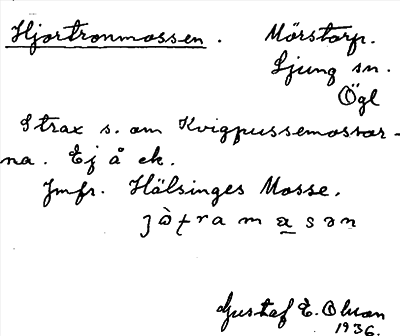 Hjortronmossen. Mörstorp.
Ljung sn.
Ögl
Strax s. om Kvigpussemossar-
na. Ej å ek.
Jmfr. Hälsinges Mosse.
Gustaf E. Olsson
1936.